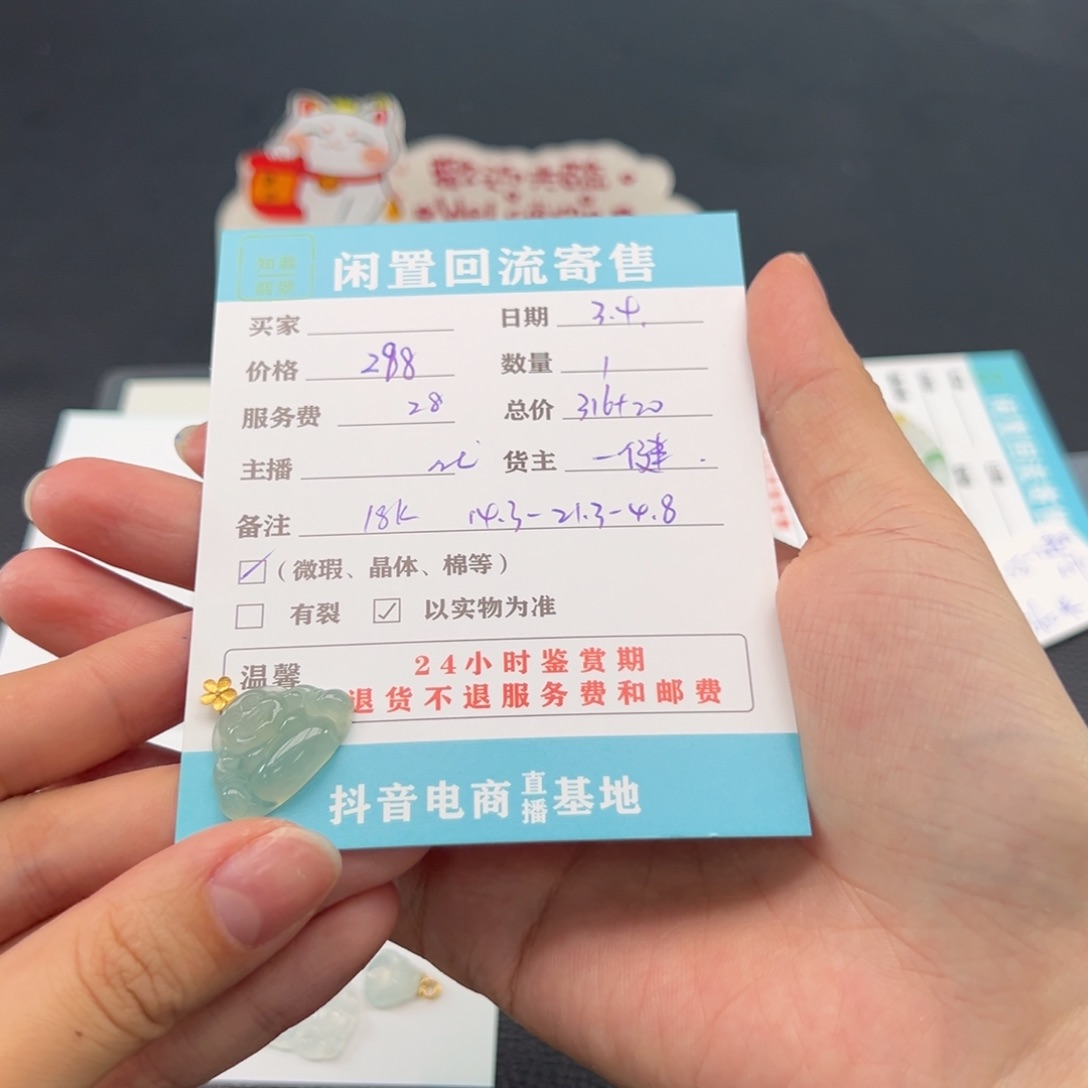 欢迎光临
闲置回流寄售
买家 日期 3.4.
价格 288 数量 1
服务费 28 总价 316+20
主播 货主 一健.
备注 18K 14.3-21.3-4.8
☑(微瑕、晶体、棉等)
☐ 有裂 ☑ 以实物为准
温馨 24小时鉴赏期
退货不退服务费和邮费
抖音电商直播基地